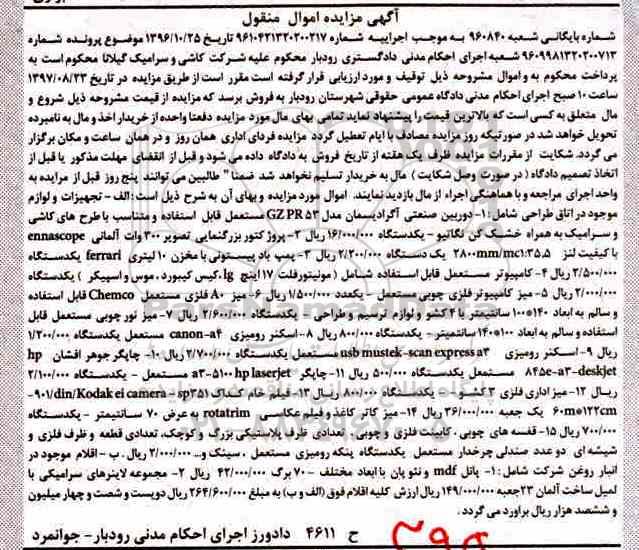 آگهی مزایده اموال منقول
شماره بایگانی شعبه ۹۶۰۸۴۰ به موجب اجراییه شماره ۹۶۱۰۴۲۱۳۲۰۲۰۰۲۱۷ تاریخ ۱۳۹۶/۱۰/۲۵ موضوع پرونده شماره
۹۶۰۹۹۸۱۳۲۰۲۰۰۷۱۳ شعبه اجرای احکام مدنی دادگستری رودبار محکوم علیه شرکت کاشی و سرامیک گیلانا محکوم است به
پرداخت محکوم به و اموال مشروحه ذیل توقیف و مورد ارزیابی قرار گرفته است مقرر است از طریق مزایده در تاریخ ۱۳۹۷/۰۸/۲۳
ساعت ۱۰ صبح اجرای احکام مدنی دادگاه عمومی حقوقی شهرستان رودبار به فروش برسد که مزایده از قیمت مشروحه ذیل شروع و
مال متعلق به کسی است که بالاترین قیمت را پیشنهاد نماید تمامی بهای مال مورد مزایده دفعتا واحده از خریدار اخذ و مال به نامبرده
تحویل خواهد شد در صورتیکه روز مزایده مصادف با ایام تعطیل گردد مزایده فردای اداری همان روز و در همان ساعت و مکان برگزار
می گردد. شکایت از مقررات مزایده ظرف یک هفته از تاریخ فروش به دادگاه داده می شود و قبل از انقضای مهلت مذکور یا قبل از
اتخاذ تصمیم دادگاه ( در صورت وصل شکایت ) مال به خریدار تسلیم نخواهد شد ضمنا" طالبین می توانند پنج روز قبل از مزایده به
واحد اجرای مراجعه و با هماهنگی اجراء از مال بازدید نمایند. اموال مورد مزایده و بهای آن به شرح ذیل است : الف - تجهیزات و لوازم
موجود در اتاق طراحی شامل : ۱- دوربین صنعتی آگرادیسمان مدل GZ PR ۵۳ مستعمل قابل استفاده و متناسب با طرح های کاشی
و سرامیک به همراه خشک کن نگاتیو - یکدستگاه ۱۶/۰۰۰/۰۰۰ ریال ۲- پروژکتور بزرگنمایی تصویر ۳۰۰ وات آلمانی ennascope
با کیفیت لنز ۲۸۰۰mm/mc۱:۳۵.۵ یک دستگاه ۲/۲۰۰/۰۰۰ ریال ۳- پمپ باد پیستونی با مخزن ۱۰ لیتری ferrari یکدستگاه
۲/۵۰۰/۰۰۰ ریال ۴- کامپیوتر مستعمل قابل استفاده شامل ( مونیتور فلت ۱۷ اینچ lg، کیس کیبورد ، موس و اسپیکر ) یکدستگاه
۲/۰۰۰/۰۰۰ ریال ۵- میز کامپیوتر فلزی چوبی مستعمل - یکعدد ۱/۵۰۰/۰۰۰ ریال ۶- میز A۰ فلزی مستعمل Chemco قابل استفاده
و سالم به ابعاد ۱۴۰*۱۰۰ سانتیمتر با ۲ کشو و لوازم ترسیم و طراحی - یکدستگاه ۲/۶۰۰/۰۰۰ ریال ۷- میز نور چوبی مستعمل قابل
استفاده و سالم به ابعاد ۱۰۰*۱۴۰ سانتیمتر - یکدستگاه ۸۰۰/۰۰۰ ریال ۸- اسکنر رومیزی canon-a۴ مستعمل یکدستگاه ۱/۲۰۰/۰۰۰
ریال ۹- اسکنر رومیزی usb mustek-scan express a۳ مستعمل یکدستگاه ۲/۷۰۰/۰۰۰ ریال ۱۰- چاپگر جوهر افشان hp
۸۴۵e-a۳-deskjet مستعمل یکدستگاه ۵۰۰/۰۰۰ ریال ۱۱- چاپگر a۳-۵۱۰۰ hp laserjet مستعمل - یکدستگاه ۲/۱۰۰/۰۰۰
ریال ۱۲- میز اداری فلزی ۳ کشو - یکدستگاه ۸۰۰/۰۰۰ ریال ۱۳- فیلم خام کداک ۹۰۱/din/Kodak ei camera - sp۳۵۱-
۶۰m*۱۲۲cm یک جعبه ۳۶/۰۰۰/۰۰۰ ریال ۱۴- میز کاتر کاغذ و فیلم عکاسی rotatrim به عرض ۷۰ سانتیمتر - یکدستگاه
۷۰۰/۰۰۰ ریال ۱۵- قفسه های چوبی ، کابینت فلزی و چوبی ، تعدادی ظرف پلاستیکی بزرگ و کوچک، تعدادی قطعه و ظرف فلزی و
شیشه ای دو عدد صندلی چرخدار مستعمل یکدستگاه پنکه رومیزی مستعمل ، سینک و... ۲/۰۰۰/۰۰۰ ریال . ب - اقلام موجود در
انبار روغن شرکت شامل : ۱- پانل mdf و نئوپان با ابعاد مختلف ۷۰۰ برگ ۴۲/۰۰۰/۰۰۰ ریال ۲- مجموعه لاینرهای سرامیکی با
لمیل ساخت آلمان ۲۳ جعبه ۱۴۹/۰۰۰/۰۰۰ ریال ارزش کلیه اقلام فوق (الف و ب) به مبلغ ۲۶۴/۶۰۰/۰۰۰ ریال دویست و شصت و چهار میلیون
و ششصد هزار ریال براورد می گردد .
ح ۴۶۱۱ دادورز اجرای احکام مدنی رودبار - جوانمرد